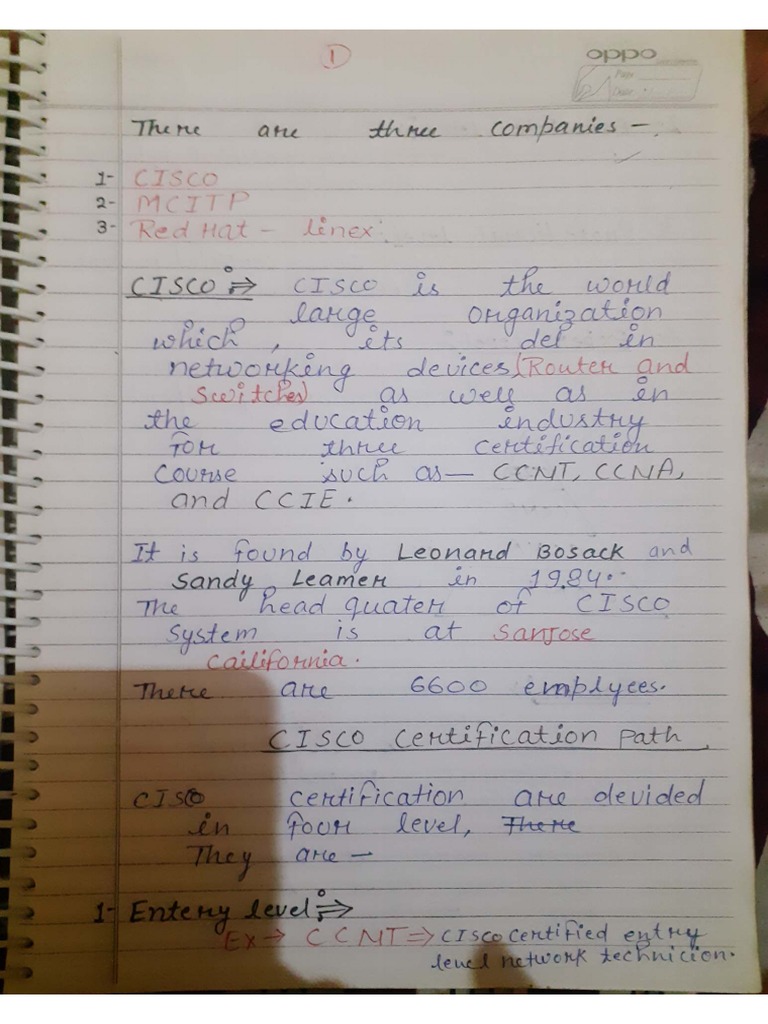 1
oppo
Page
Date
There are three companies -
1- CISCO
2- MCITP
3- Red Hat - linex
CISCO :⇒ CISCO is the world
large organization
which, its del in
networking devices (Router and
Switches) as well as in
the education industry
for three certification
course such as — CCNT, CCNA,
and CCIE.
It is found by Leonard Bosack and
Sandy Leamer in 1984.
The head quater of CISCO
System is at Sanjose
Cailifornia.
There are 6600 emplyees.
CISCO Certification Path
CISCO certification are devided
in four level, There
They are —
1- Entery level :⇒
Ex → CCNT ⇒ CISCO certified entry
level network technicion.